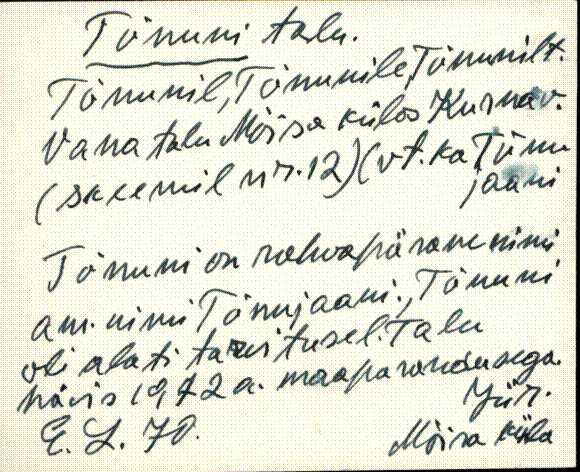 Tõnuni talu.
Tõnunil, Tõnunile, Tõnunilt.
Vana talu Mõisa külas Kurna v.
(skeemil nr. 12) (vt. ka Tõnu
jaani
Tõnuni on rahvapärane nimi
am. nimi Tõnujaani., Tõnuni
oli alati tarvitusel. Talu
hävis 1972 a. maaparandusega.
Jür.
E. L. 70.
Mõisa küla